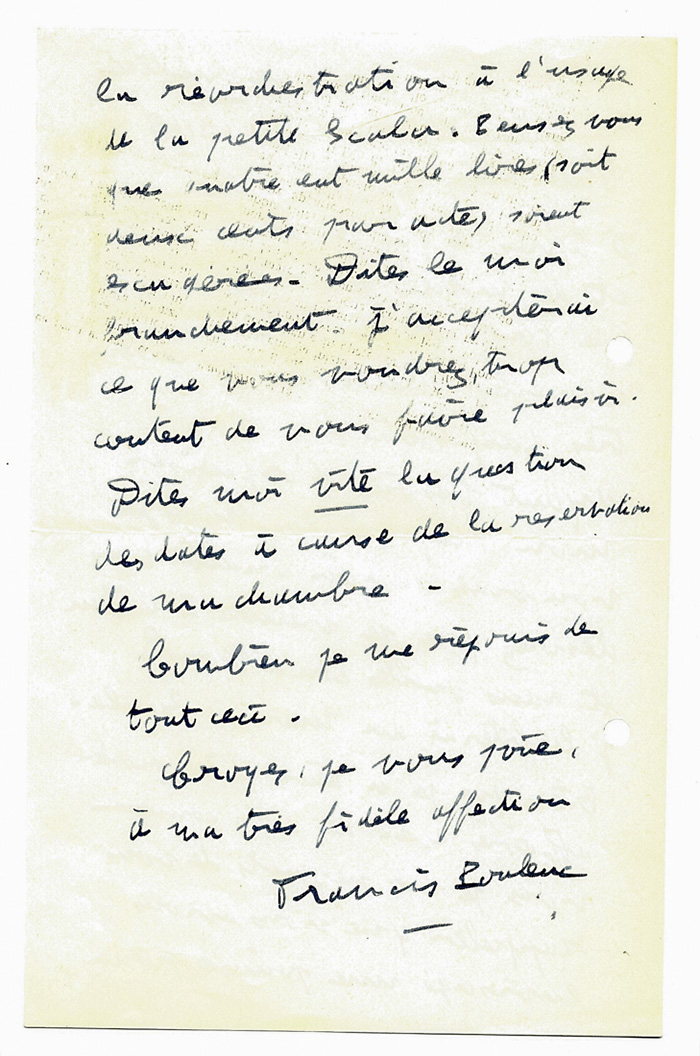 la réorchestration à l'usage
de la petite Scala. Pensez vous
que quatre cent mille lires (soit
deux cents par acte) soient
exagérées - Dites le moi
franchement. J'accepterai
ce que vous voudrez, trop
content de vous faire plaisir.
Dites moi vite la question
des dates à cause de la reservation
de ma chambre -
Combien je me réjouis de
tout ceci.
Croyez, je vous prie,
à ma très fidèle affection
Francis Poulenc